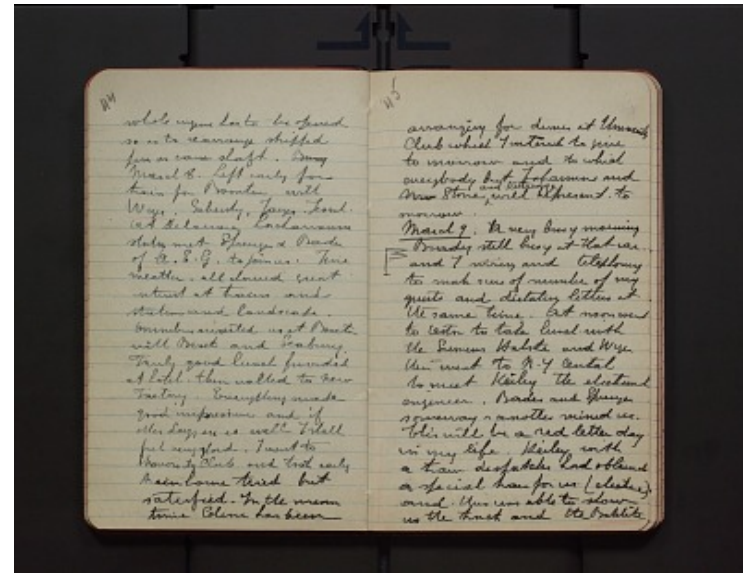 44
whole engine has to be opened
so as to rearrange stripped
pin on cam shaft.
March 8. Left early for
train for Boonton with
at Delaware Lackawanna
station met Sprenger & Brader
of A.E.G. to join us. Fine
weather. all showed great
interest at trains and
stations and landscape.
Omnibus awaited us at Boonton
with and Seabury.
Truly good lunch provided
at hotel. then walked to new
Factory. Everything made
good impression and if
other days go as well I shall
feel very glad. I went to
University Club and took early
train home tired but
satisfied. In the mean
time Celine has been
45
arranging for dinner at University
Club which I intend to give
to morrow and to which
everybody but and
Mrs Stone, will be present to
morrow.
March 9. A very busy morning
Brader still busy at that car.
and I wiring and telephoning
to make sure of number of my
guests and dictating letters at
the same time. At noon went
to to take lunch with
the Siemens Halske and
then went to N.Y Central
to meet the electrical
engineer. Brader and Sprenger
someway or another missed us.
this will be a red letter day
in my life. with
a train despatcher had obtained
a special train for us (electric)
and thus was able to show
us the track and the Bakelite